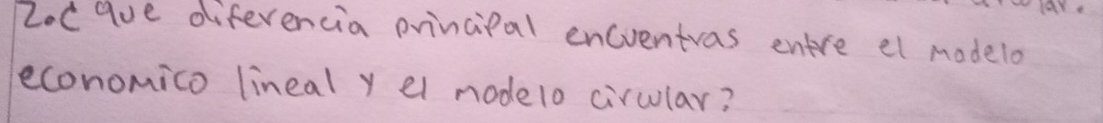 2.¿ que diferencia principal encuentras entre el modelo
economico lineal y el modelo circular?